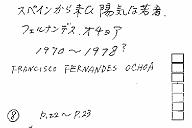 スペインから来た陽気な若者.
フェルナンデス.オチョア
1970〜1978?
FRANCISCO FERNANDES OCHOA
⑧ P.22〜P.23